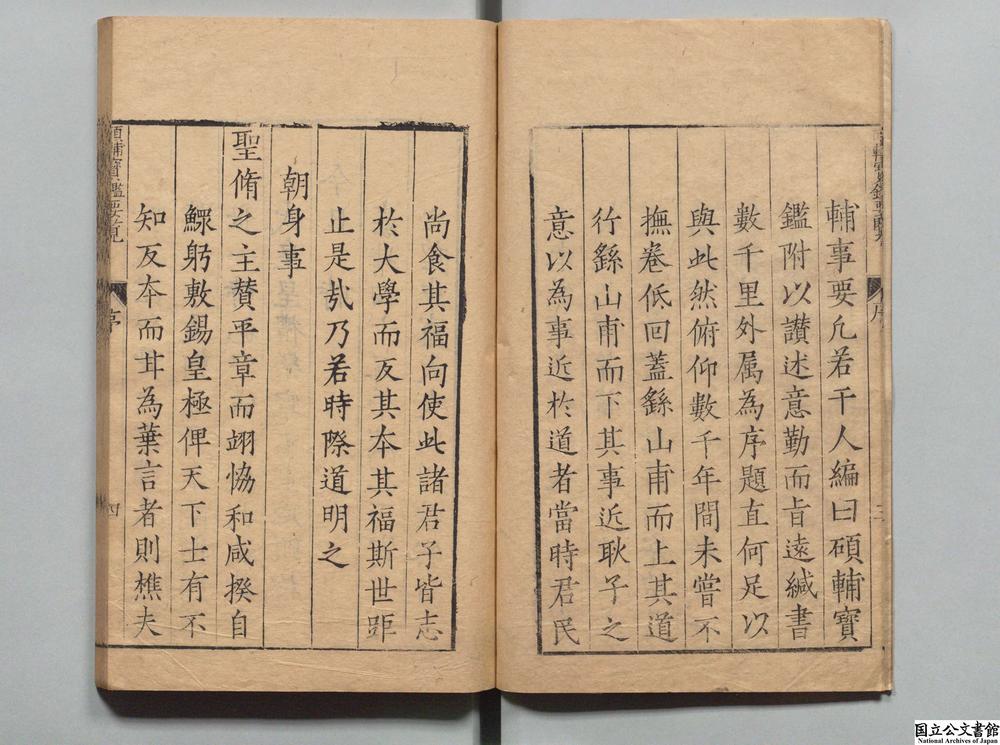 輔事要凢若干人編曰碩輔寳
鑑附以讃述意勤而㫖遠緘書
數千里外属為序題直何足以
與此然俯仰數千年間未嘗不
撫卷低回蓋繇山甫而上其道
行繇山甫而下其事近耿子之
意以為事近於道者當時君民
序
三
尚食其福向使此諸君子皆志
於大學而反其本其福斯世距
止是㢤乃若時際道明之
朝身事
聖脩之主賛平章而翊恊和咸揆自
鰥躬敷錫皇極俾天下士有不
知反本而耳為葉言者則樵夫
碩輔寳鑑要覧
序
四
国立公文書館
National Archives of Japan